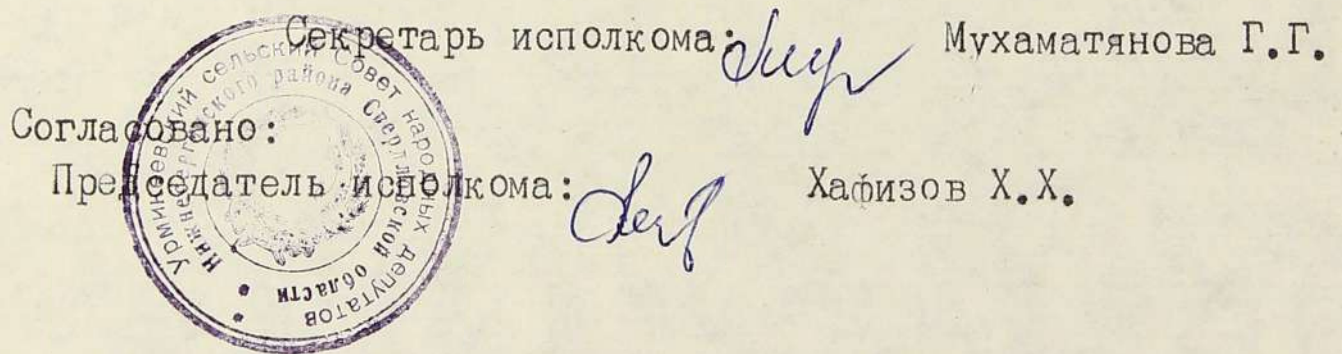 Секретарь исполкома: Мухаматянова Г.Г.
Согласовано:
Председатель исполкома: Хафизов Х.Х.
Урминеевский сельский Совет народных депутатов
Нижнесергинского района Свердловской области